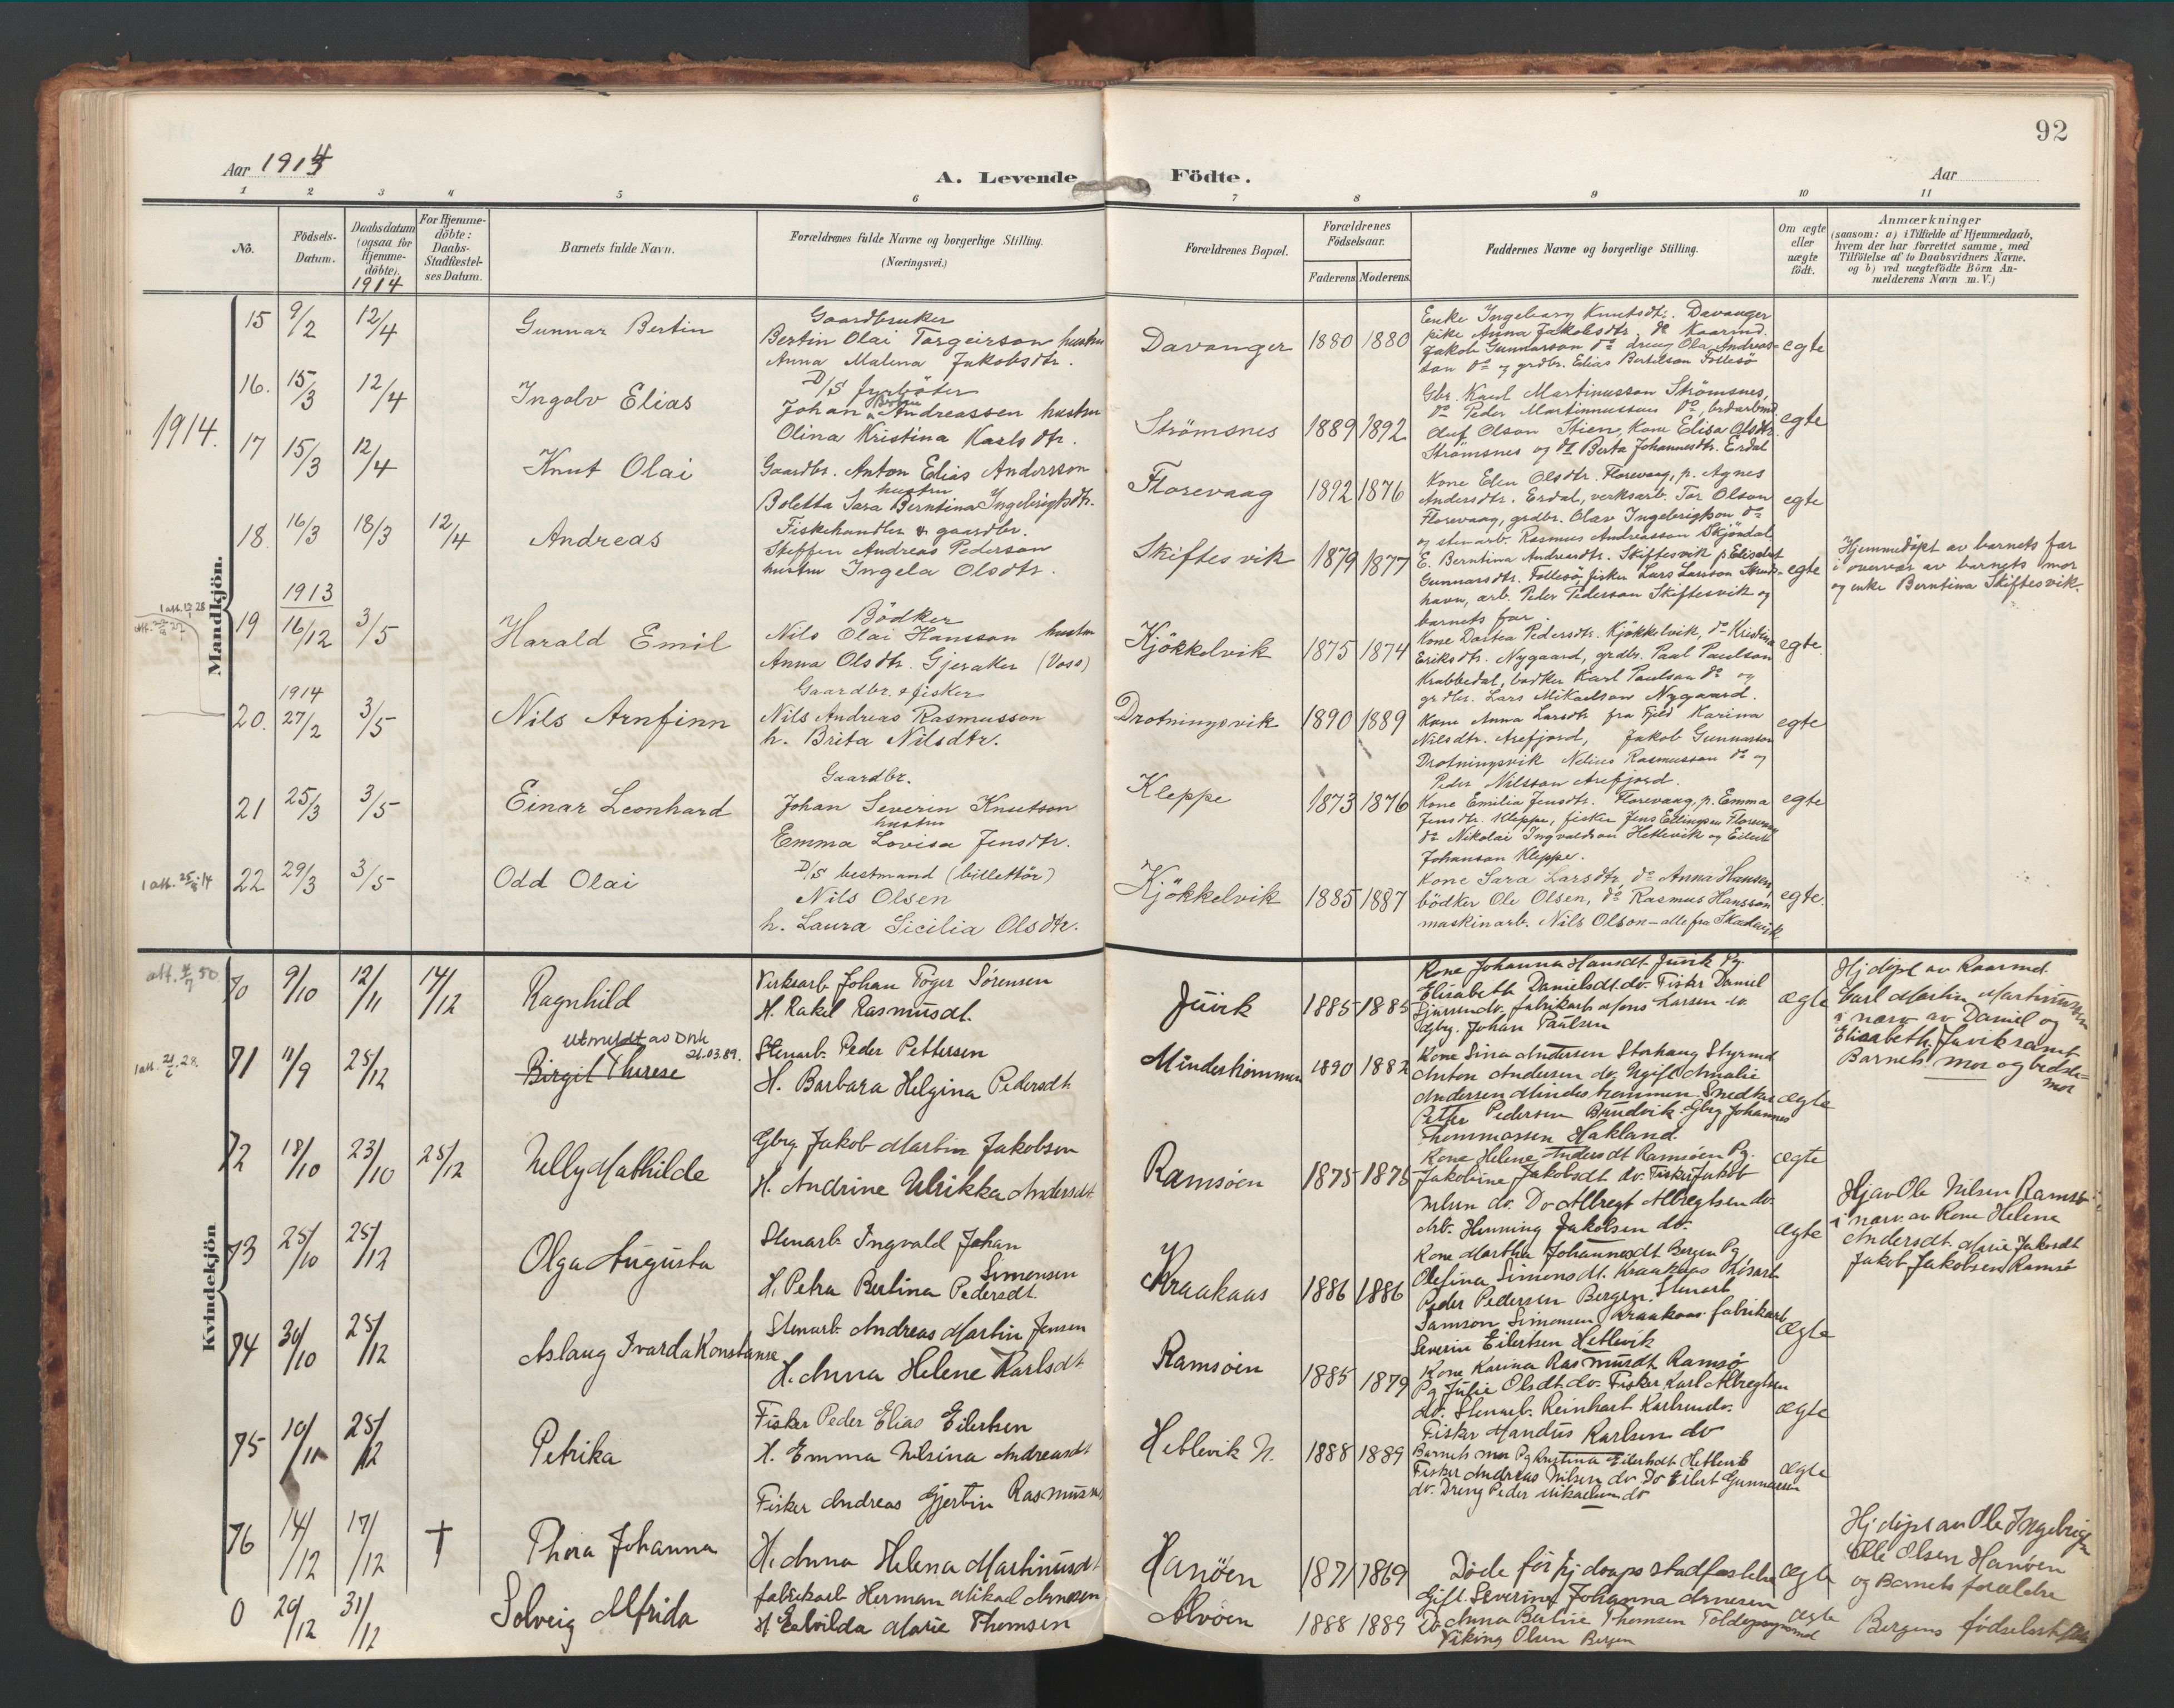 92
Aar 1914
A. Levende Födte.
Aar
1 2 3 4 5 6 7 8 9 10 11
No.
Födsels-Datum.
Daabsdatum (ogsaa for Hjemme-döbte).
1914
For Hjemme-döbte: Daabs-Stadfæstel-ses Datum.
Barnets fulde Navn.
Forældrenes fulde Navne og borgerlige Stilling.
(Næringsvei.)
Forældrenes Bopæl.
Forældrenes Födselsaar.
Faderens Moderens
Faddernes Navne og borgerlige Stilling.
Om ægte eller uægte födt.
Anmærkninger
(saasom: a) i Tilfælde af Hjemmedaab,
hvem der har forrettet samme, med
Tilföielse af to Daabsvidners Navne.
og b) ved uægtefödte Börn An-
melderens Navn m. V.)
1914.
Mandkjön.
15 9/2 12/4 Gunnar Bertin
Gaardbruker
Bertin Olai Torgeirson hustru
Anna Malena Jakobsdtr.
Davanger 1880 1880
Enke Ingeborg Knutsdtr. Davanger
pike Anna Jakobsdtr. do Kaarmd.
Jakob Gunnarson do dreng Ola Andreas-
son do og grdbr. Elias Bertilson Follesö
egte
16. 15/3 12/4 Ingolv Elias
D/S fyrböter
Johan Andreassen hustru
Olina Kristina Karlsdtr.
Strömsnes 1889 1892
Gbr. Karl Martinusson Strömsnes,
do Peder Martinnussen do,
Oluf Olson Stien, Kone Elisa Olsdtr.
Strömsnes og do Berta Johannesdtr. Erdal
egte
17 15/3 12/4 Knut Olai
Gaardbr. Anton Elias Andersson
hustru
Boletta Sara Berntina Ingebrigtsdtr.
Florevaag 1892 1876
Kone Elen Olsdtr. Florevaag, p. Agnes
Andersdtr. Erdal, verksarb. Tor Olson
Florevaag, grdbr. Olav Ingebrigtson do
og stenarb. Rasmus Andreasson Skjöndal
egte
18. 16/3 18/3 12/4 Andreas
Fiskehandler & gaardbr.
Steffen Andreas Pederson
hustru Ingela Olsdtr.
Skiftesvik 1879 1877
E. Berntina Andreasdtr. Skiftesvik p Elisabet
Gunnarsdtr. Follesö, fisker Lars Larsson
havn, arb. Peder Pederson Skiftesvik og
barnets far.
egte
Hjemmedöpt av barnets far
i overvær av barnets mor
og enke Berntina Skiftesvik.
1913
19 16/12 3/5 Harald Emil
Bödker
Nils Olai Hansson hustru
Anna Olsdtr. Gjeraker (Voss)
Kjökkelvik 1875 1874
Kone Dortea Pedersdtr. Kjökkelvik, do Kristina
Eriksdtr. Nygaard, grdbr. Paal Paulson
Krabbedal, bödker Karl Paulson do og
grdbr. Lars Mikaelson Nygaard.
egte.
1914
20. 27/2 3/5 Nils Arnfinn
Gaardbr. & fisker
Nils Andreas Rasmusson
h. Brita Nilsdtr.
Drotningsvik 1890 1889
Kone Anna Larsdtr fra Fjeld Karina
Nilsdtr. Arefjord, Jakob Gunnarson
Drotningsvik Nelius Rasmusson do og
Peder Nilsson Arefjord.
egte
21 25/3 3/5 Einar Leonhard
Gaardbr.
Johan Severin Knutson
hustru
Emma Lovisa Jensdtr.
Kleppe 1873 1876
Kone Emilia Jensdtr. Florevaag, p. Emma
Jensdtr. Kleppe, fisker Jens Ellingsen Florevaag
do Nikolai Ingvaldson Hetlevik og Eilert
Johanson Kleppe.
egte
1 att. 25/8-14
22 29/3 3/5 Odd Olai
D/S bestmand (billettör)
Nils Olsen
h. Laura Sicilia Olsdtr.
Kjökkelvik 1885 1887
Kone Sara Larsdtr, do Anna Hansen,
bödker Ole Olsen, do Rasmus Hansson
maskinarb. Nils Olson - alle fra
egte.
Kvindekjön
70 9/10 12/11 14/12 Ragnhild
Verksarb Johan Töger Sörensen
H. Rakel Rasmusdt.
Juvik 1885 1885
Kone Johanna Hansdt Juvik Pg.
Elisabeth Danielsdt do. Fisker Daniel
Sjursen do. fabrikarb Mons Larsen do.
Gbrg. Johan Paulsen
ægte
Hjdöpt av Kaarmd.
Carl Martin Martinussen
i nærv av Daniel og
Elisabeth Juvik samt
Barnets mor og bedste-
mor
71 11/9 25/12 Birgit Therese
Utmeldt av Dnk
21.03.89.
Stenarb. Peder Pettersen
H. Barbara Helgina Pedersdt
Mindestrømmen 1890 1882
Kone Sina Andersen Storhaug Styrmd
Anton Andersen do. Ugift Amalie
Andersen Mindestrømmen Snedker
Petter Pedersen Bundvik Gbrg Johannes
Thommassen Hakland.
ægte
72 18/10 23/10 25/12 Nelly Mathilde
Gbrg Jakob Martin Jakobsen
H. Andrine Ulrikka Andersdt
Ramsöen 1875 1875
Kone Helene Andersdt Ramsöen Pg.
Jakobine Jakobsdt do. Fisker Jakob
Nilsen do. Do Albregt Albregtsen do.
Arb. Henning Jakobsen do.
ægte
Hj av Ole Nilsen Ramsö
i nærv. av Kone Helene
Andersdt Marie Jakobsdt
Jakob Jakobsen Ramsö
73 25/10 25/12 Olga Augusta
Stenarb. Ingvald Johan
Simonsen
H. Petra Bertina Pedersdt
Kraakaas 1886 1886
Kone Martha Johannesdt Bergen Pg.
Olefina Simonsdt. Kraakaas
Peder Pedersen Bergen. Stenarb
Samson Simonsen Kraakaas fabrikarb
Severin Eilertsen Hetlevik
ægte
74 30/10 25/12 Aslaug Ivarda Konstanse
Stenarb. Andreas Martin Jensen
H. Anna Helene Karlsdt
Ramsöen 1885 1879
Kone Karina Rasmusdt Ramsö
Pg Julie Olsdt do. Fisker Karl Albregtsen
do. Stenarb. Reinhart Karlsen do.
Fisker Mandus Karlsen do
Ægte
75 10/11 25/12 Petrika
Fisker Peder Elias Eilertsen
H. Emma Nilsina Andreasdt
Hetlevik N. 1888 1889
Barnets mor Pg Kristina Eilertsdt Hetlevik
Fisker Andreas Nilsen do Do Eilert Gunnarsen
do. Dreng Peder Mikaelsen do
ægte
76 14/12 17/12 † Thora Johanna
Fisker Andreas Gjertin Rasmussen
H. Anna Helena Martinusdt
Hanöen 1871 1869
Döde för hj daaps stadfestelse
Ægte
Hj döpt av Ole Ingebrigtsen
Ole Olsen Hanöen
og Barnets forældre
0 29/12 31/12 Solveig Alfrida
fabrikarb Herman Mikael Arnesen
H. Marie Thomsen
Alvöen 1888 1889
Gift Severine Johanna Arnesen
Do Anna Bertine Thomsen
Viking Olsen Bergen
ægte
Bergens